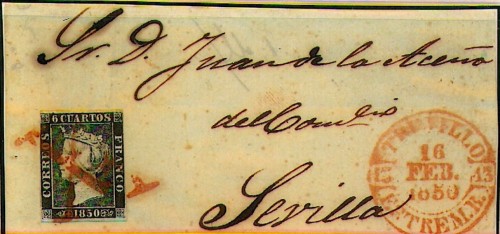 Sr. D. Juan de la Aceña
del Comercio
Sevilla
6 CUARTOS
CORREOS
FRANCO
1850
TRUJILLO
16
FEB.
1850
13
ESTREM.B.